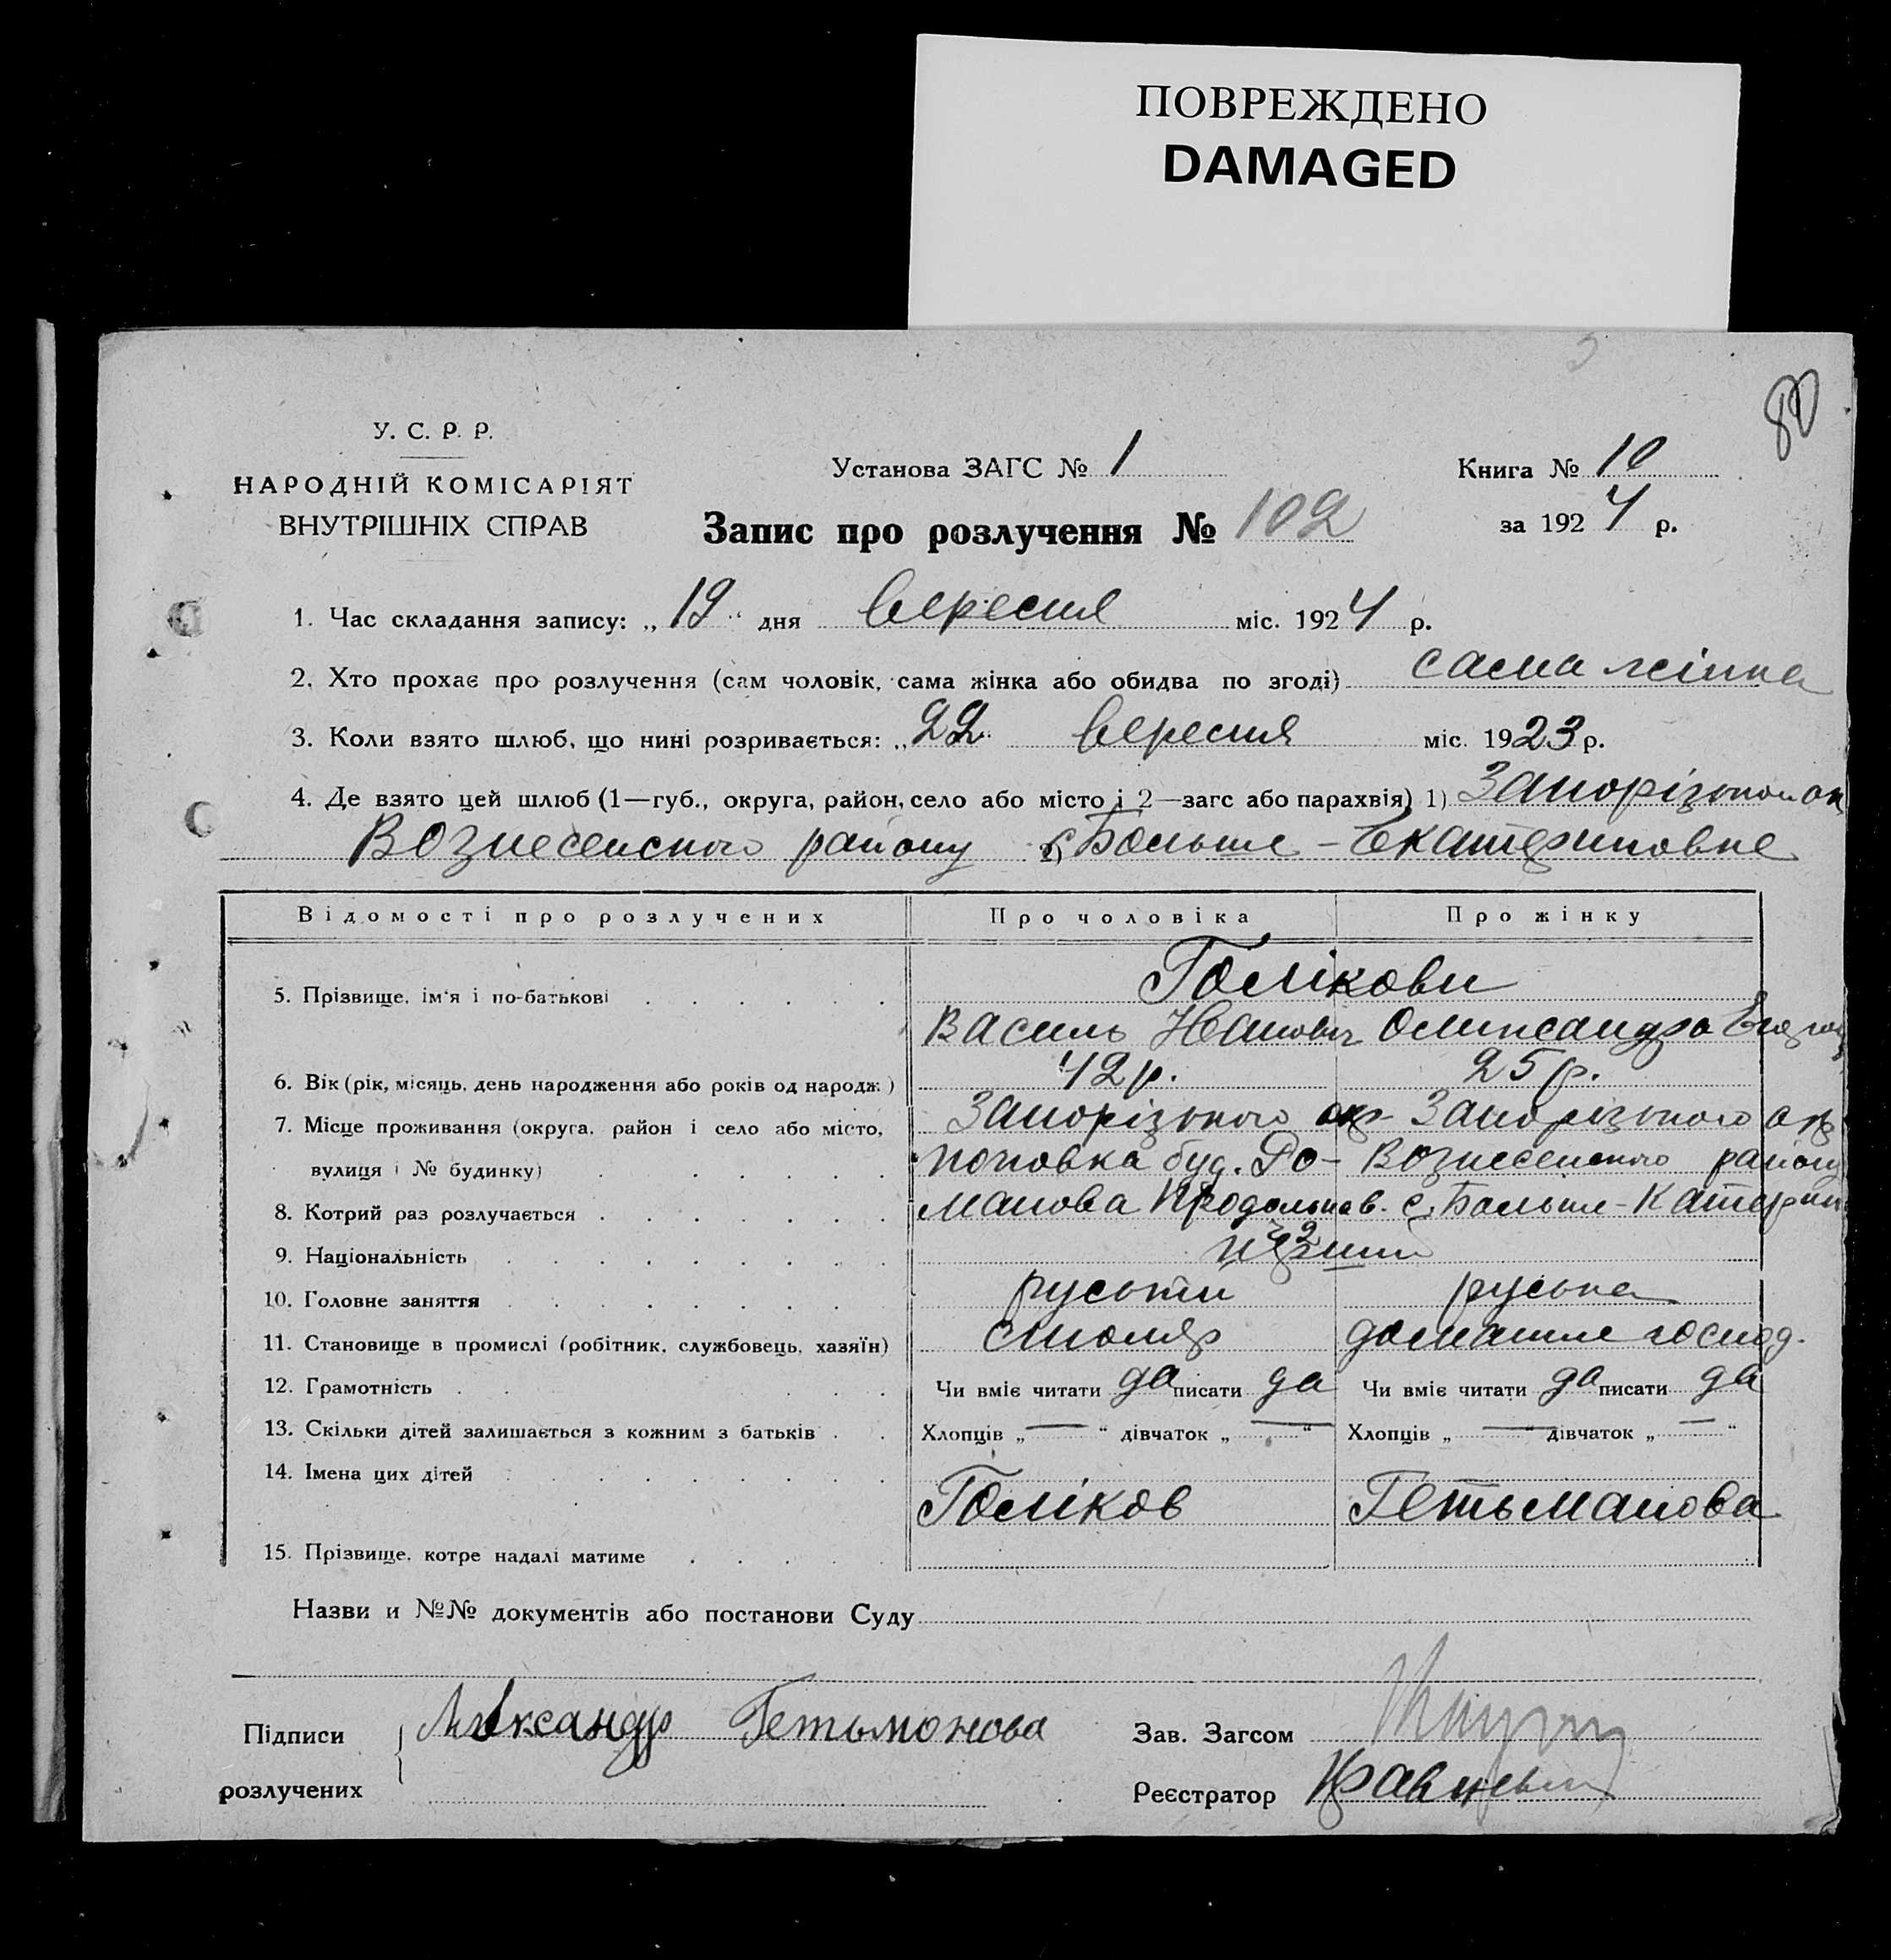 ПОВРЕЖДЕНО
DAMAGED
80
У. С. Р. Р.
НАРОДНІЙ КОМІСАРІЯТ
ВНУТРІШНІХ СПРАВ
Установа ЗАГС № 1
Книга № 10
за 1924 р.
Запис про розлучення № 102
1. Час складання запису: „19“ дня вересня міс. 1924 р.
2. Хто прохає про розлучення (сам чоловік, сама жінка або обидва по згоді) сама жінка
3. Коли взято шлюб, що нині розривається: „22 вересня міс. 1923 р.
4. Де взято цей шлюб (1—губ., округа, район, село або місто і 2—загс або парахвія) 1) Запорізькои ок
Вознесенского району с. Больше-Екатериновке
Відомості про розлучених Про чоловіка Про жінку
Голікови
5. Прізвище, ім‘я і по-батькові
Василь Иванович Олександра
6. Вік (рік, місяць, день народження або років од народж.) 42 р. 25 р.
7. Місце проживання (округа, район і село або місто, Запорізького окр Запорізького окр
вулиця і № будинку) поповка буд. Ро- Вознесенского району
8. Котрий раз розлучається манова Продольна в. с. Больше-Катерин
9. Національність
10. Головне заняття руський руська
11. Становище в промислі (робітник, службовець, хазяїн) столяр домашне господ.
12. Грамотність Чи вміє читати да писати да Чи вміє читати да писати да
13. Скільки дітей залишається з кожним з батьків Хлопців „ — “ дівчаток „ — “ Хлопців „ — “ дівчаток „ — “
14. Імена цих дітей
Голіков Гетьманова
15. Прізвище, котре надалі матиме
Назви и №№ документів або постанови Суду
Підписи Александр Гетьмонова Зав. Загсом
розлучених Реєстратор